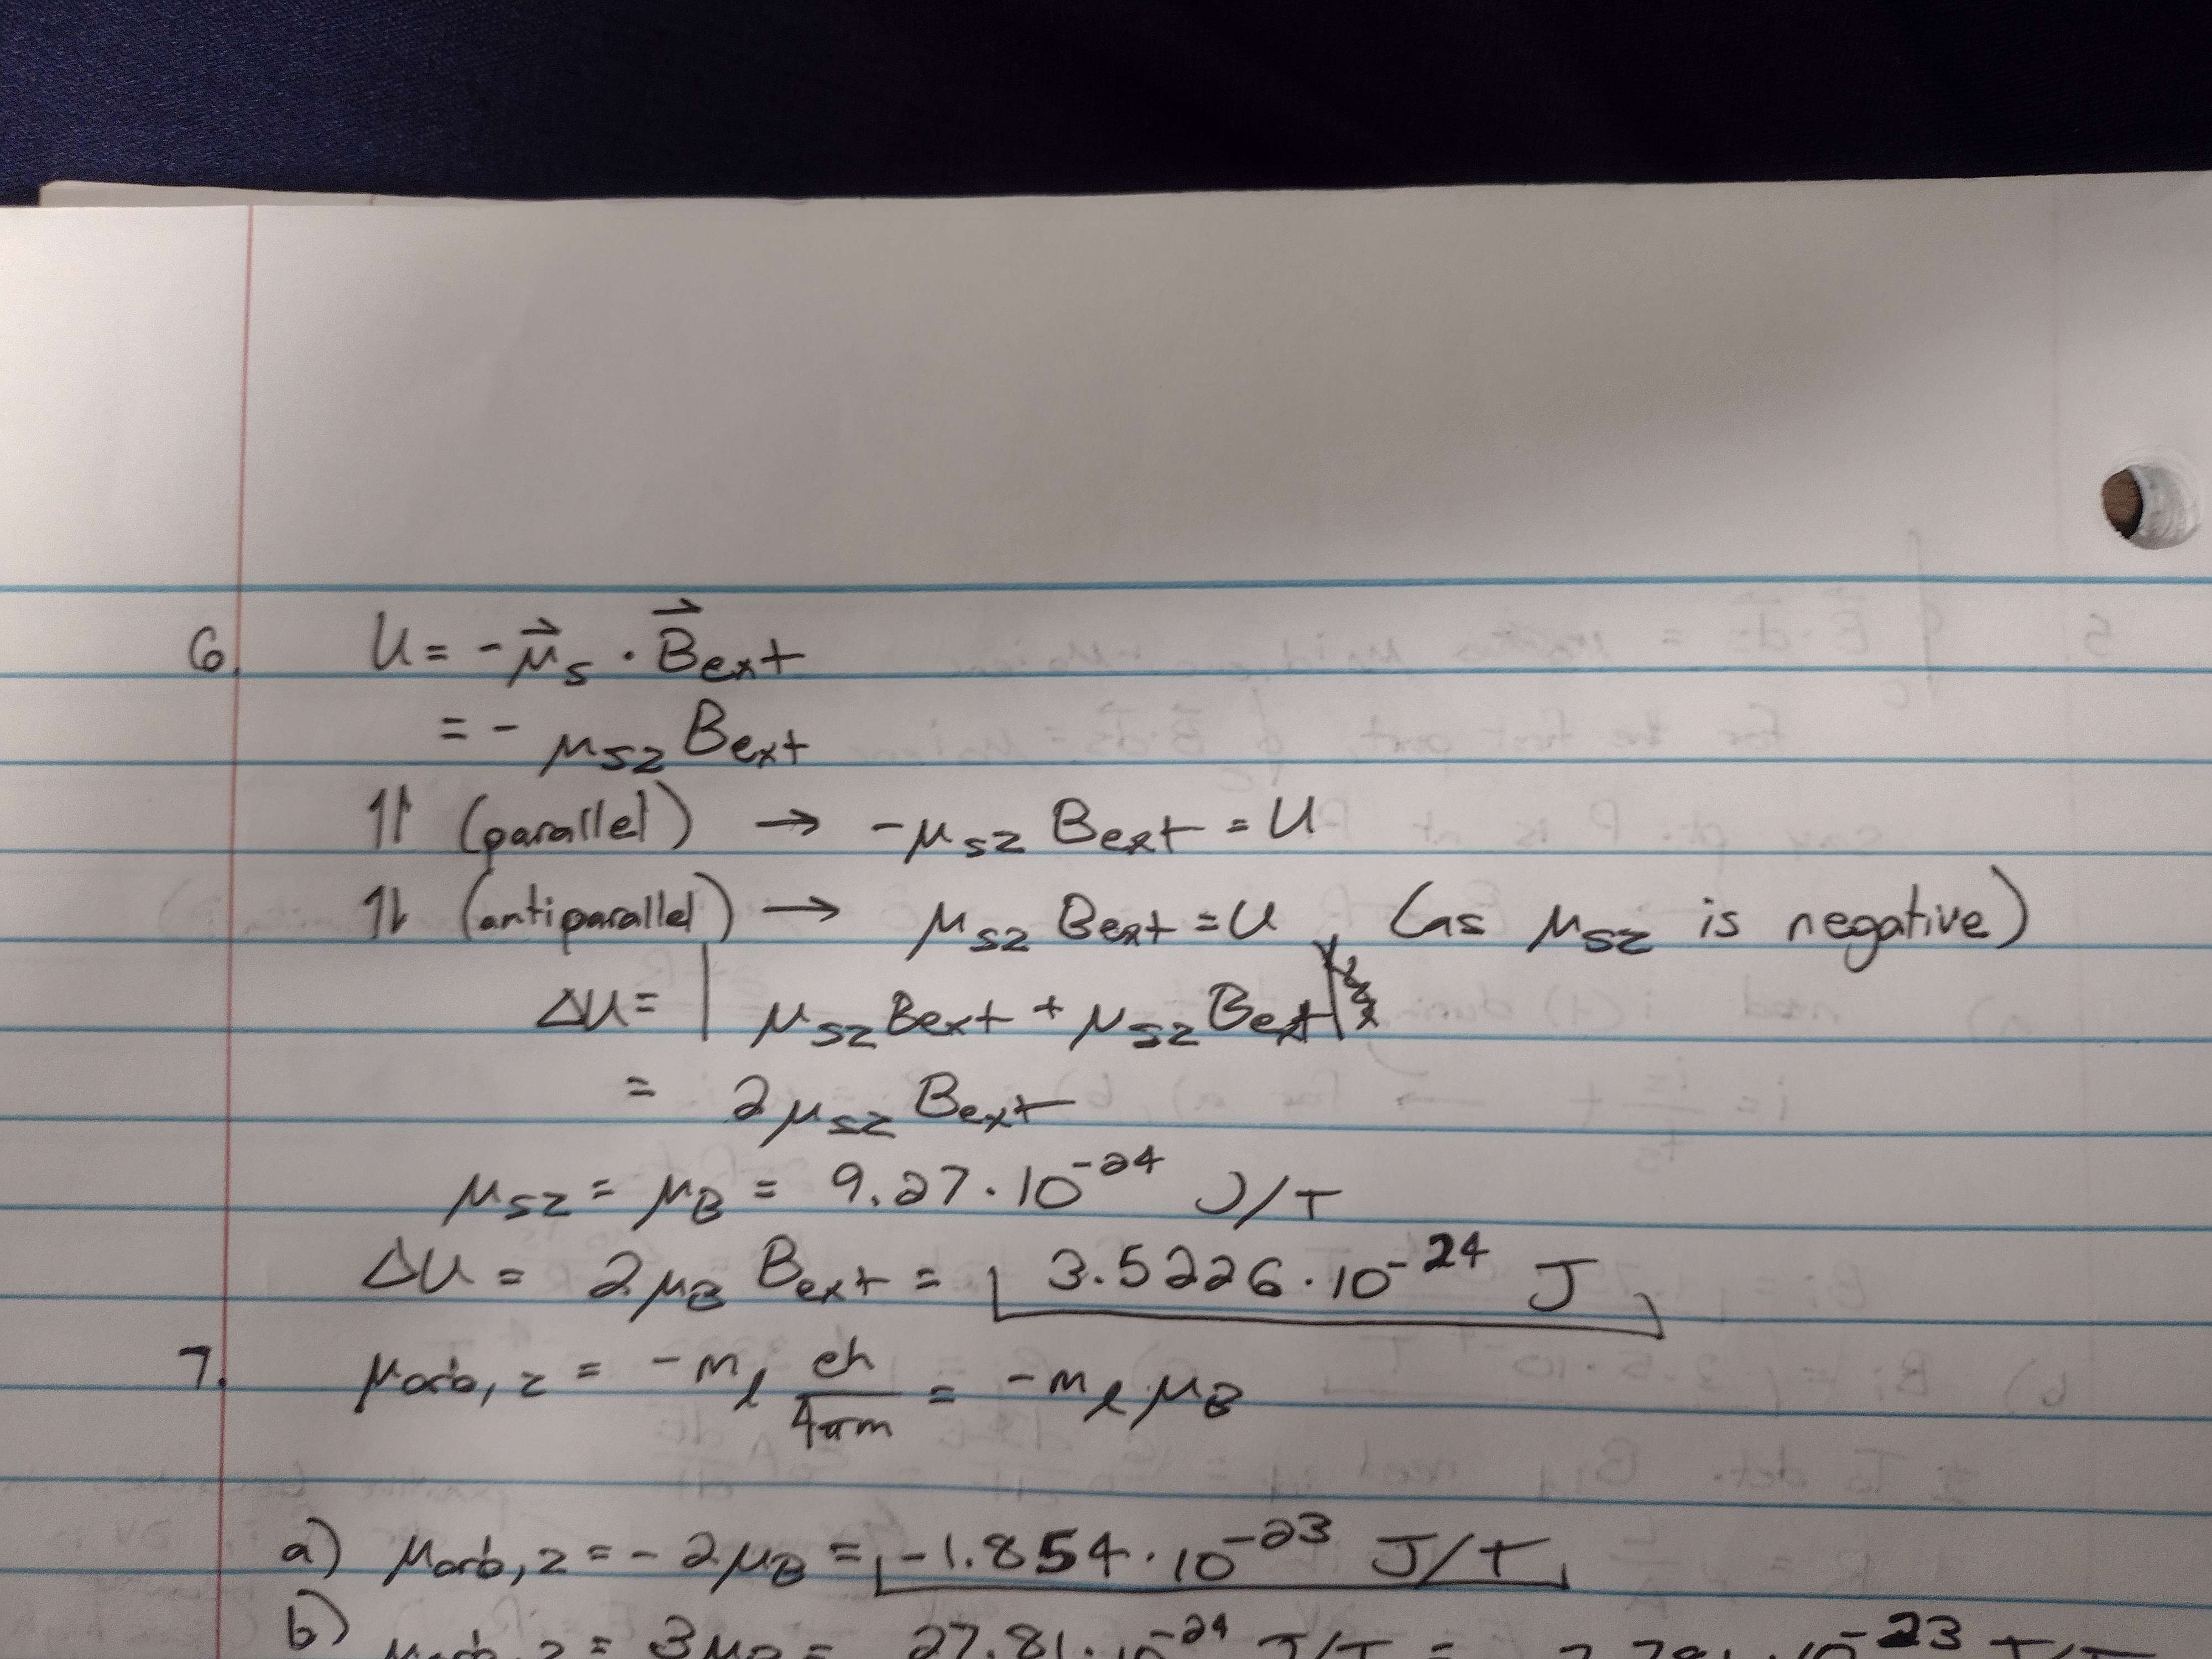 6. U = -μ⃗s · B⃗ext
= -μsz Bext
↿↾ (parallel) → -μsz Bext = U
↿⇂ (antiparallel) → μsz Bext = U (as μsz is negative)
ΔU = | μsz Bext + μsz Bext |
= 2μsz Bext
μsz = μB = 9.27·10^-24 J/T
ΔU = 2μB Bext = 3.5226·10^-24 J
7. μorb,z = -mℓ eh/4πm = -mℓ μB
a) μorb,z = -2μB = -1.854·10^-23 J/T
b) μorb,z = 3μB = 27.81·10^-24 J/T =